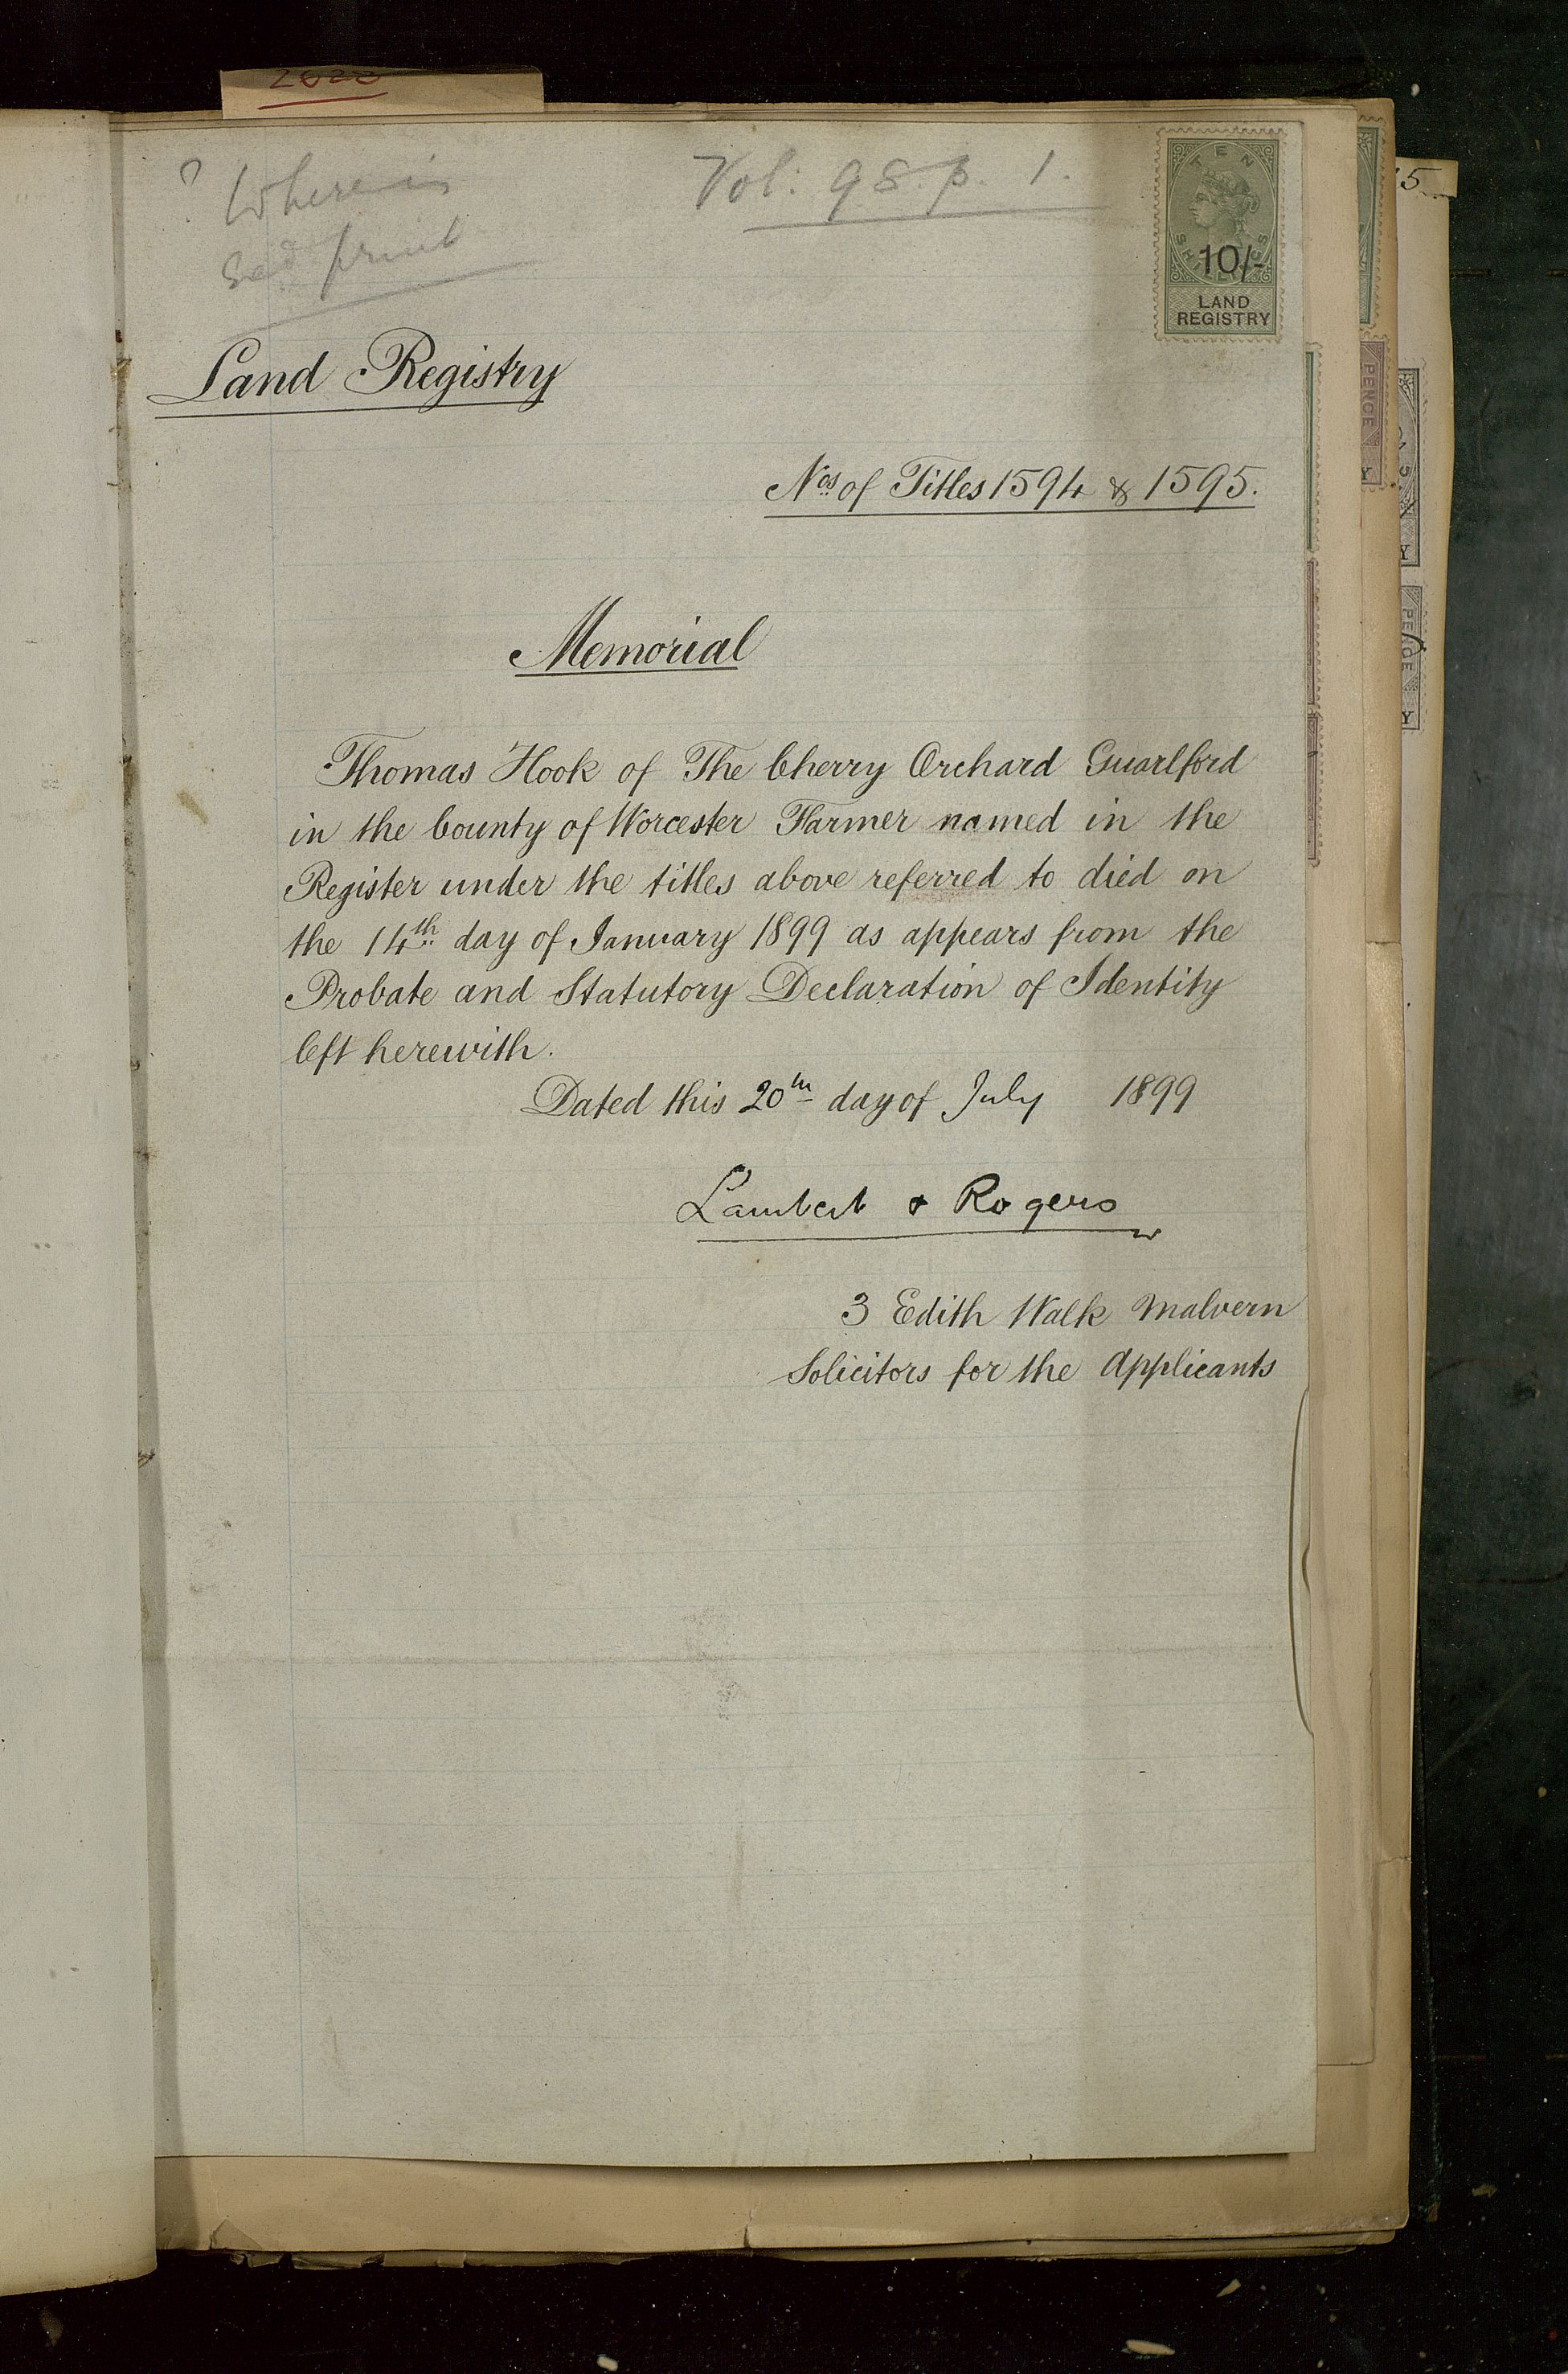 2620
? Where is
print
Vol: 98. p. 1.
TEN
SHILLINGS
10/-
LAND
REGISTRY
Land Registry
Nos of Titles 1594 & 1595.
Memorial
Thomas Hook of The Cherry Orchard Guarlford
in the County of Worcester Farmer named in the
Register under the titles above referred to died on
the 14th day of January 1899 as appears from the
Probate and Statutory Declaration of Identity
left herewith.
Dated this 20th day of July 1899
Lambert & Rogers
3 Edith Walk Malvern
Solicitors for the Applicants
15
PENCE
Y
Y
PENCE
Y